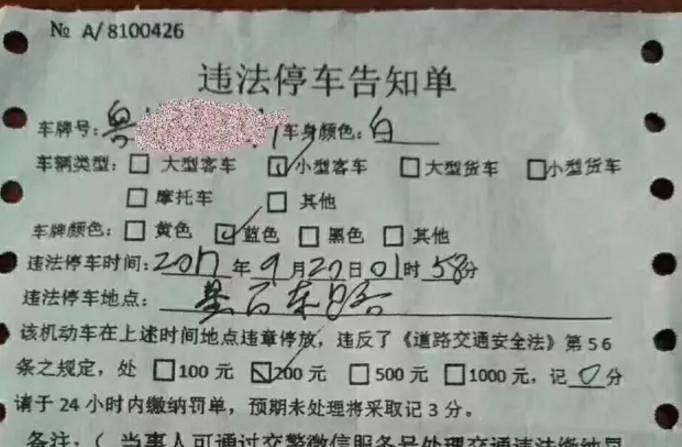 № A/8100426
违法停车告知单
车牌号:粤 车身颜色:白
车辆类型:□ 大型客车 ☑小型客车 □大型货车 □小型货车
□ 摩托车 □ 其他
车牌颜色:□ 黄色 ☑蓝色 □黑色 □其他
违法停车时间:2017年9月27日01时58分
违法停车地点:东路
该机动车在上述时间地点违章停放,违反了《道路交通安全法》第56
条之规定,处 □100元 ☑200元 □500元 □1000元,记0分
请于24小时内缴纳罚单,预期未处理将采取记3分。
备注:( 当事人可通过交警微信服务号处理交通违法缴纳罚